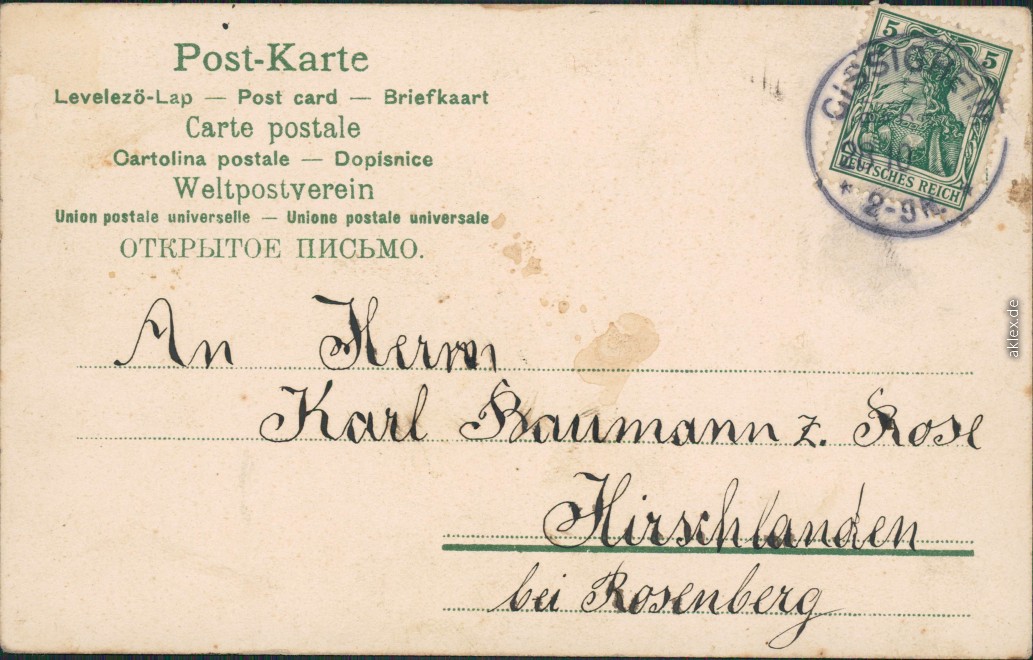 Post-Karte
Levelezö-Lap — Post card — Briefkaart
Carte postale
Cartolina postale — Dopisnice
Weltpostverein
Union postale universelle — Unione postale universale
ОТКРЫТОЕ ПИСЬМО.
5 5
DEUTSCHES REICH
GISSIGHEIM
2-9N.
An Herrn
Karl Baumann z. Rose
Hirschlanden
bei Rosenberg
aklex.de